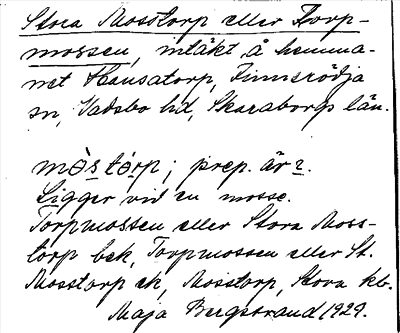 Stora Mosstorp eller Torp-
mossen, intäkt å hemma-
net Hansatorp, Finnerödja
sn, Vadsbo hd, Skaraborgs län.
mòstórp; prep. är 2.
Ligger vid en mosse.
Torpmossen eller Stora Moss-
torp bek, Torpmossen eller St.
Mosstorp ek, Mosstorp, Stora kb.
Maja Bergstrand 1929.